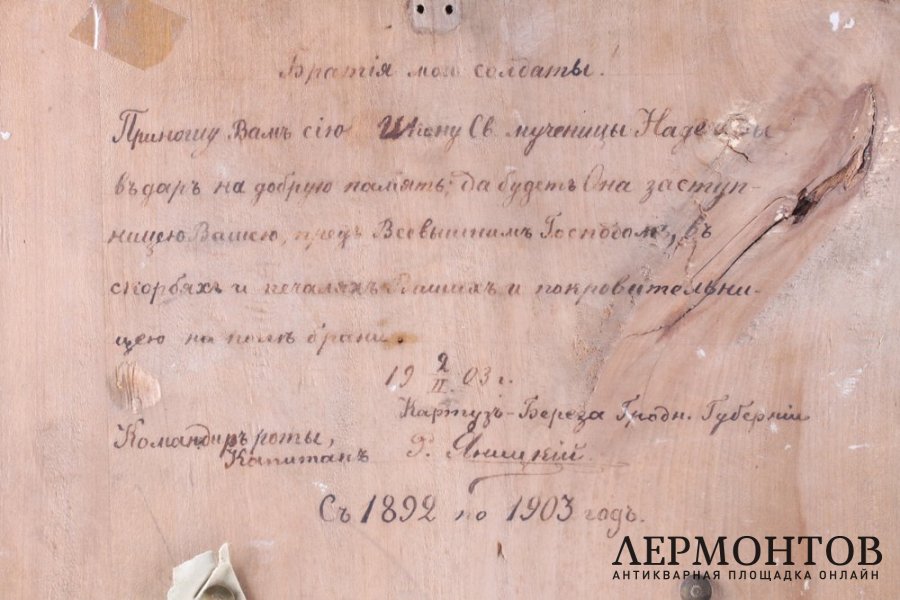 Братія мои солдаты!
Приношу Вамъ сію Икону Св мученицы Надежды
въ даръ на добрую память; да будетъ Она заступ-
ницею Вашею, предъ Всевышнимъ Господомъ, въ
скорбяхъ и печаляхъ Вашихъ и покровительни-
цею на поле брани.
19 2/II 03 г.
Картузъ-Береза Гродн. Губерніи
Командиръ роты,
Капитанъ Яницкій.
Съ 1892 по 1903 годъ.
ЛЕРМОНТОВ
АНТИКВАРНАЯ ПЛОЩАДКА ОНЛАЙН